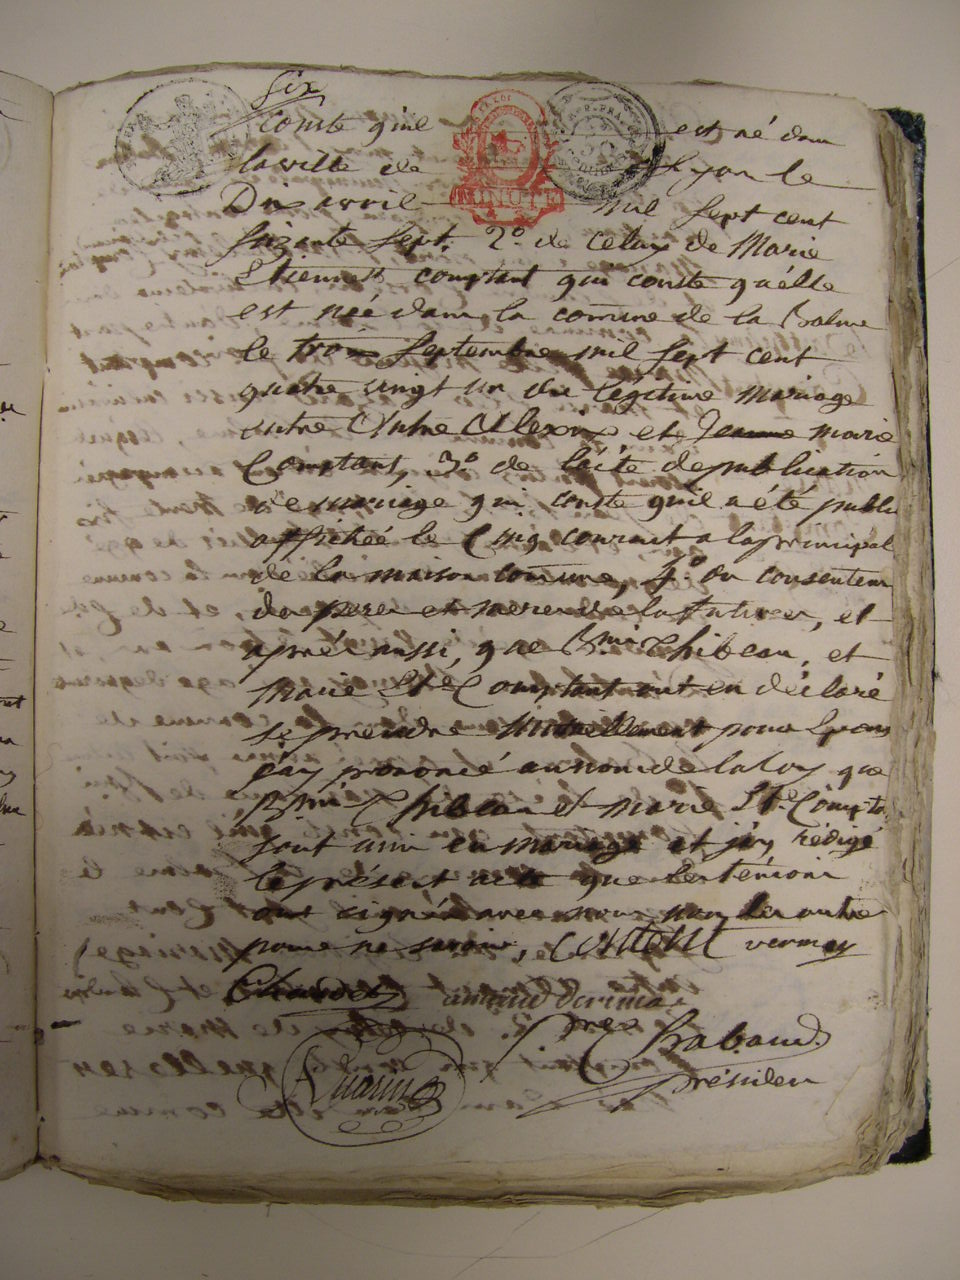 six
conste quil est né dans
la ville de Lyon le
Dix avril mil sept cent
soizante sept, 2.o de celuy de Marie
Etiennett comptant qui conste qu'élle
est née dans la comune de la Balme
le trois septembre mil sept cent
quatre vingt un du légitime mariage
entre et Jeanne marie
Comptant, 3.o de l'acte de publication
de mariage qui conste qu'il a été publi
affichéé le Cinq courant a la principal
de la maison comune, 4.o du consentem
des peres et meres de la future, et
aprés aussi, que B.mi Thibeau, et
marie St.e Comptant ont en déclaré
se prendre mutuellement pour Epoux
j'ay prononcé au nom de la loy que
B.mi Thibeau et marie St.e Compta
sont unis en mariage et j'ay rédigé
le présent acte que les témoins
ont signés avec nous non les autres
pour ne savoir, vermay
Rabaud
président
MINUTE